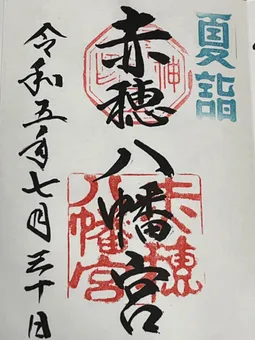 夏詣
赤穂八幡宮
赤穂
八幡宮
令和五年七月三十日